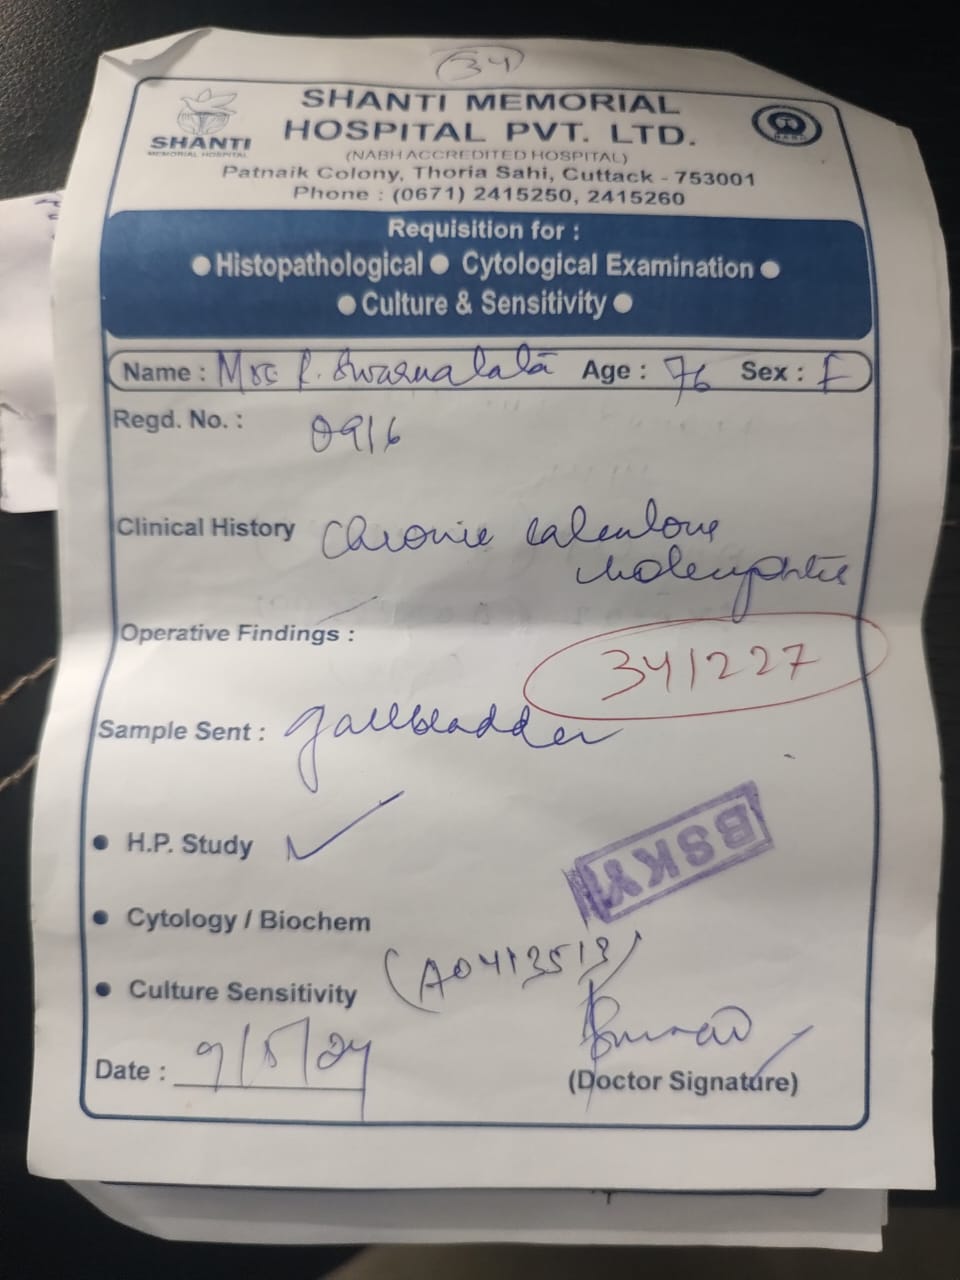 34
SHANTI MEMORIAL
HOSPITAL PVT. LTD.
SHANTI
MEMORIAL HOSPITAL
(NABH ACCREDITED HOSPITAL)
Patnaik Colony, Thoria Sahi, Cuttack - 753001
Phone : (0671) 2415250, 2415260
Requisition for :
● Histopathological ● Cytological Examination ●
● Culture & Sensitivity ●
Name : R. Swarnalata Age : 76 Sex : F
Regd. No. : 0916
Clinical History Chronic calculous
cholecystitis
Operative Findings :
341227
Sample Sent : gallbladder
● H.P. Study ✓
BSKY
● Cytology / Biochem
(A0413513)
● Culture Sensitivity
Date : 9/5/24
(Doctor Signature)